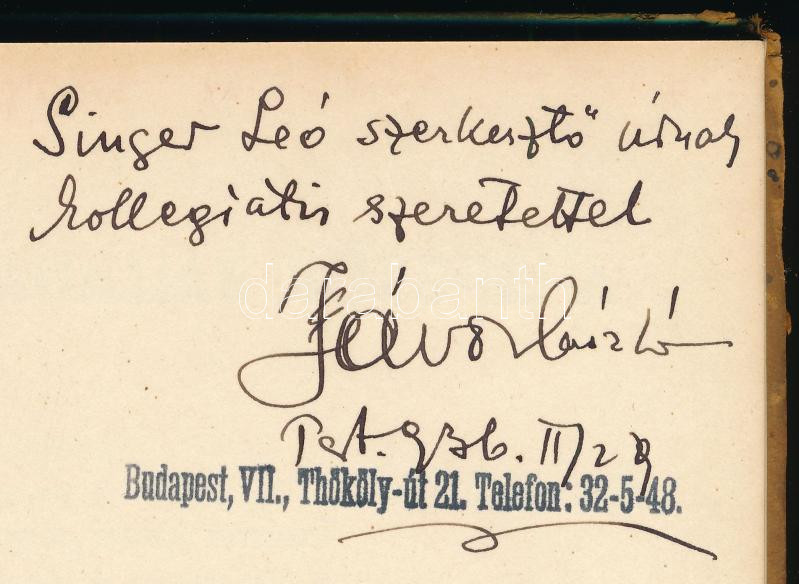 Singer Leó szerkesztő úrnak
kollegiális szeretettel
darabanth
Jávor László
Pest. 936. II/29
Budapest, VII., Thököly-út 21. Telefon: 32-5-48.